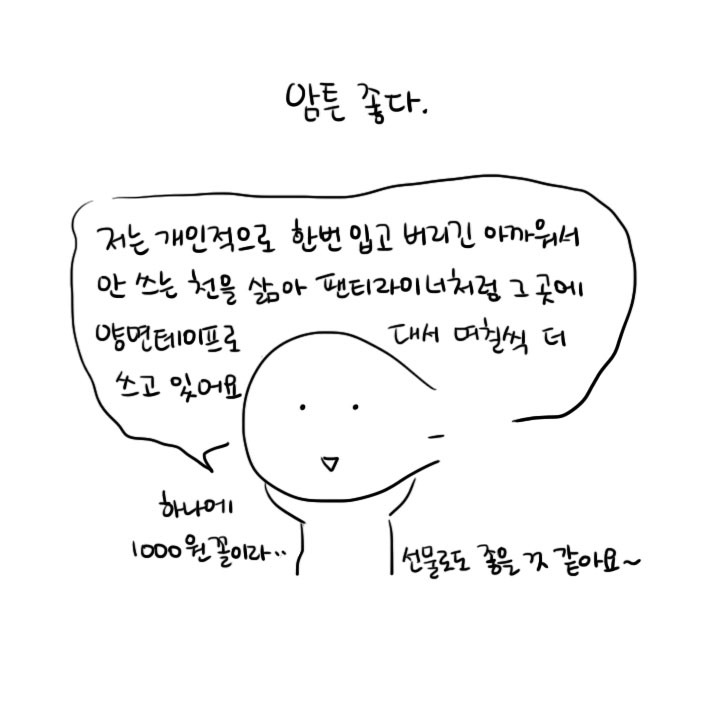 암튼 좋다.
저는 개인적으로 한번 입고 버리긴 아까워서
안 쓰는 천을 삶아 팬티라이너처럼 그 곳에
양면테이프로 대서 며칠씩 더
쓰고 있어요
하나에
1000원꼴이라..
선물로도 좋을 것 같아요~